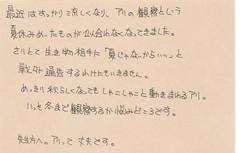 最近はすっかり涼しくなり、アリの観察という
夏休みめいたものが似合わなくなってきました。
さりとて生き物相手に「夏じゃないからいい」と
戦力外通告するわけにもいきません。
めっきり秋らしくなってもしゃこしゃこと動きまわるアリ。
いつ冬まで観察するか悩みどころです。
先生方へ。アリって丈夫です。